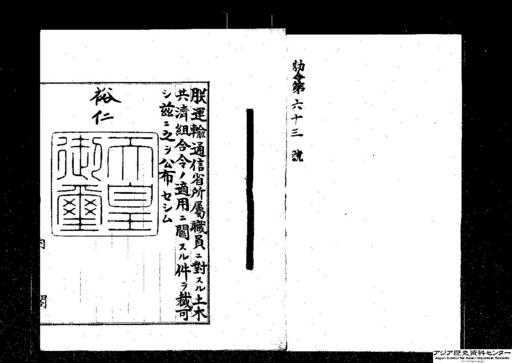 勅令第六十三號
朕運輸通信省所属職員ニ對スル土木
共濟組合令ノ適用ニ關スル件ヲ裁可
シ茲ニ之ヲ公布セシム
裕仁
天皇
御璽
内
閣
アジア歴史資料センター
Japan Center for Asian Historical Records